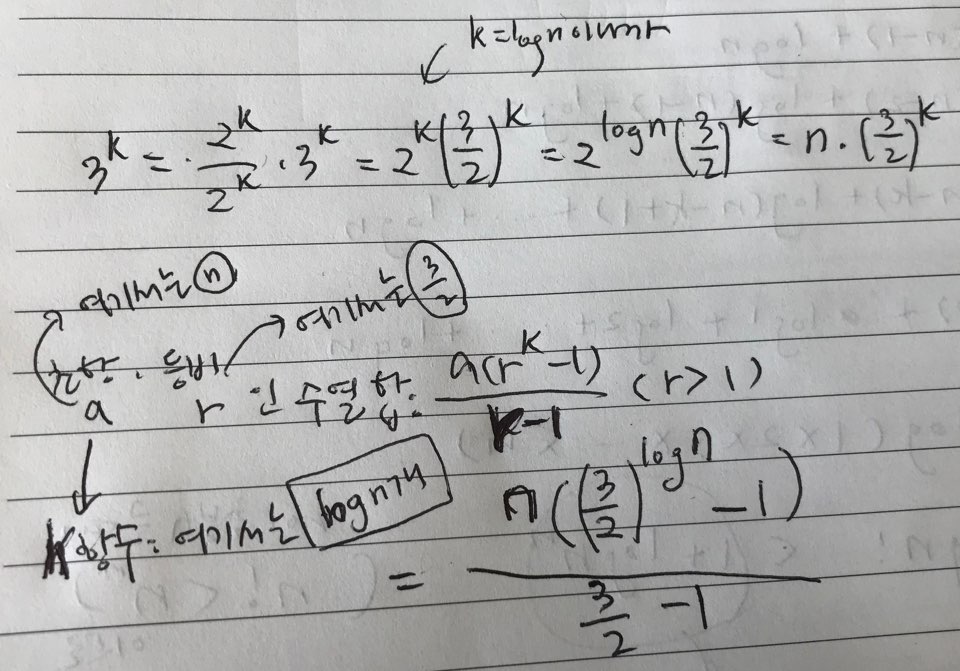 k=logn이므로
3^k = · 2^k/2^k · 3^k = 2^k(3/2)^k = 2^logn(3/2)^k = n · (3/2)^k
여기서는 n 여기서는 3/2
초항 · 등비
a r 인 수열 합: a(r^k -1)/r-1 (r>1)
k항수: 여기서는 logn개
= n((3/2)^logn -1)/(3/2 -1)